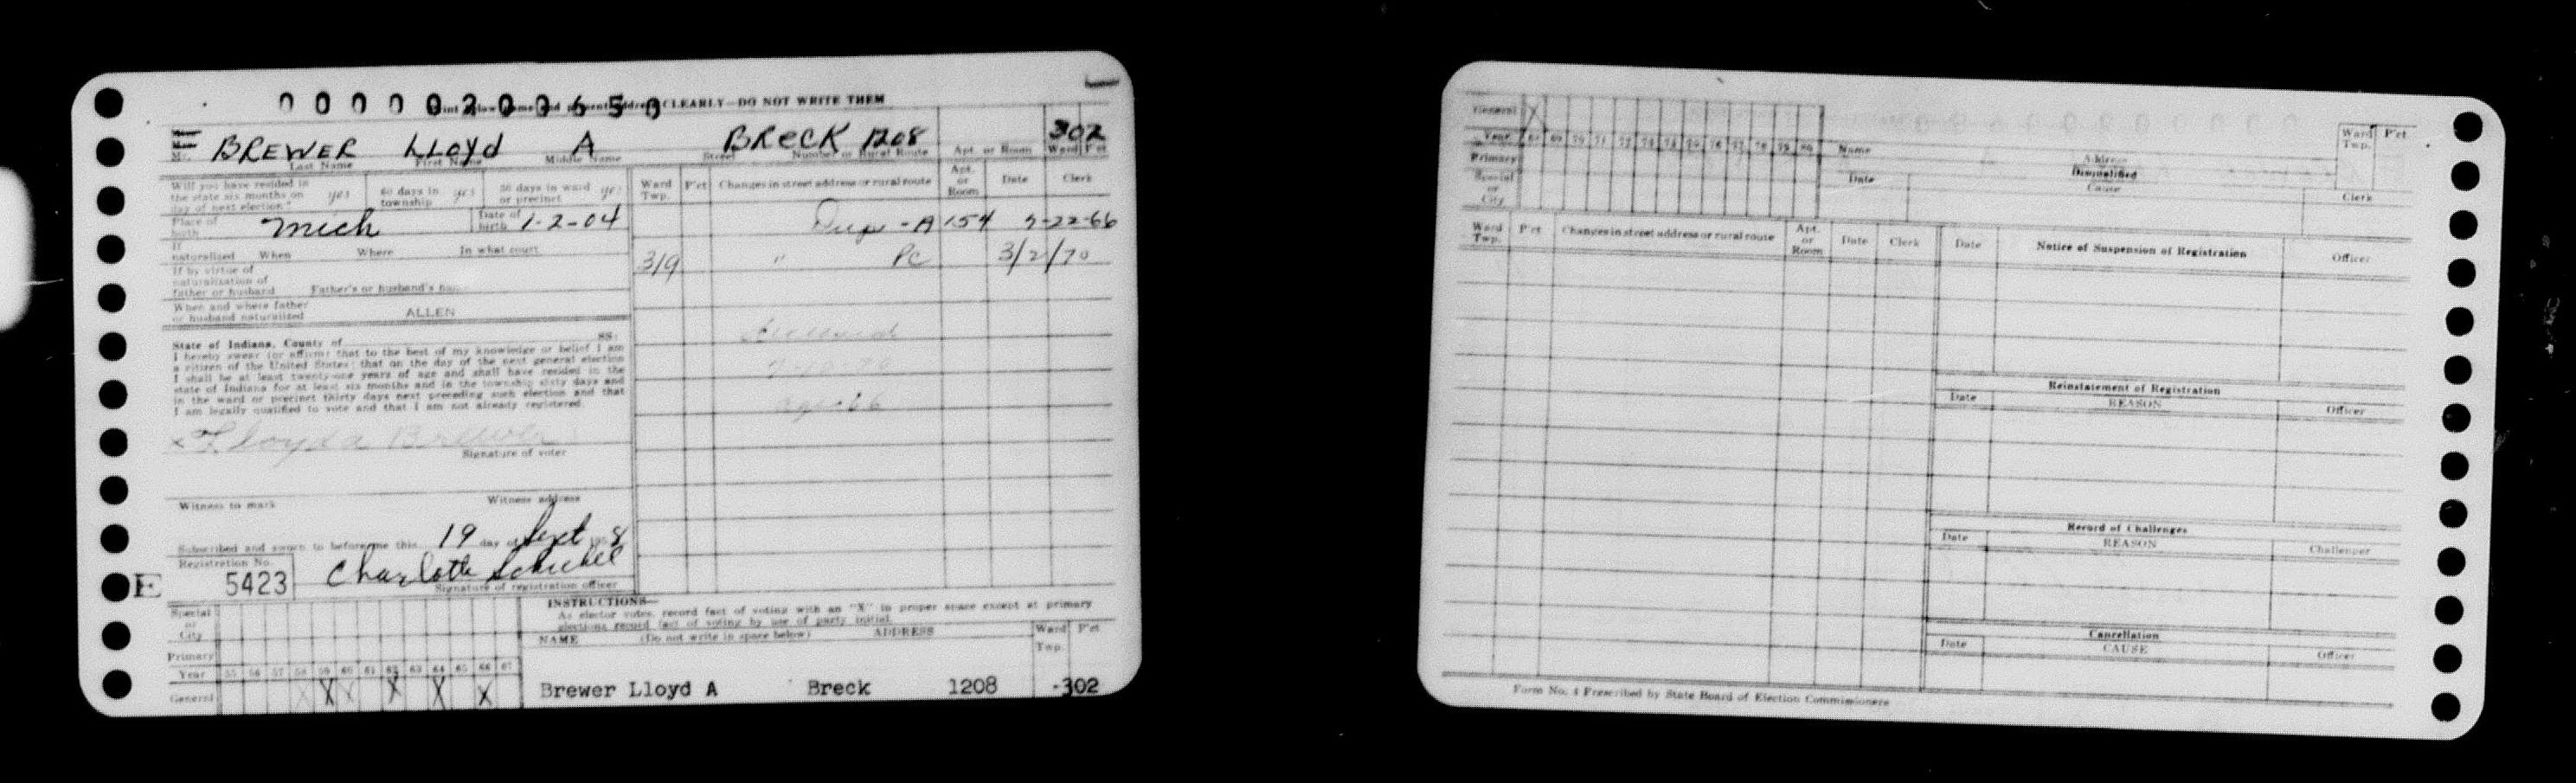 0000020065 0
Print below name and present address CLEARLY—DO NOT WRITE THEM
Mr. BREWER LLOYD A BRECK 1208 302
Last Name First Name Middle Name Street Number or Rural Route Apt. or Room Ward P'ct
Will you have resided in the state six months on day of next election? yes 60 days in township yes 30 days in ward or precinct yes
Ward Twp. P'ct Changes in street address or rural route Apt. or Room Date Clerk
Place of birth Mich Date of birth 1-2-04
Dup - A 154 22-66
If naturalized When Where In what court
319 " PC 3/2/70
If by virtue of naturalization of father or husband Father's or husband's
When and where father or husband naturalized
ALLEN
State of Indiana, County of SS:
I hereby swear (or affirm) that to the best of my knowledge or belief I am
a citizen of the United States; that on the day of the next general election
I shall be at least twenty-one years of age and shall have resided in the
state of Indiana for at least six months and in the township sixty days and
in the ward or precinct thirty days next preceding such election and that
I am legally qualified to vote and that I am not already registered.
x Lloyd a Brewer
Signature of voter
Witness to mark Witness address
Subscribed and sworn to before me this 19 day of Sept 8
Registration No. 5423
Charlotte
Signature of registration officer
E
Special or City
Primary
Year 55 56 57 58 59 60 61 62 63 64 65 66 67
General X X X X X X
INSTRUCTIONS—
As elector votes, record fact of voting with an "X" in proper space except at primary
elections record fact of voting by use of party initial.
NAME (Do not write in space below) ADDRESS Ward Twp. P'ct
Brewer Lloyd A Breck 1208 -302
General X
Year
Primary
Special or City
Name Address Ward Twp. P'ct
Disqualified
Date Cause Clerk
Ward Twp. P'ct Changes in street address or rural route Apt. or Room Date Clerk
Date Notice of Suspension of Registration Officer
Reinstatement of Registration
Date REASON Officer
Record of Challenges
Date REASON Challenger
Cancellation
Date CAUSE Officer
Form No. 4 Prescribed by State Board of Election Commissioners